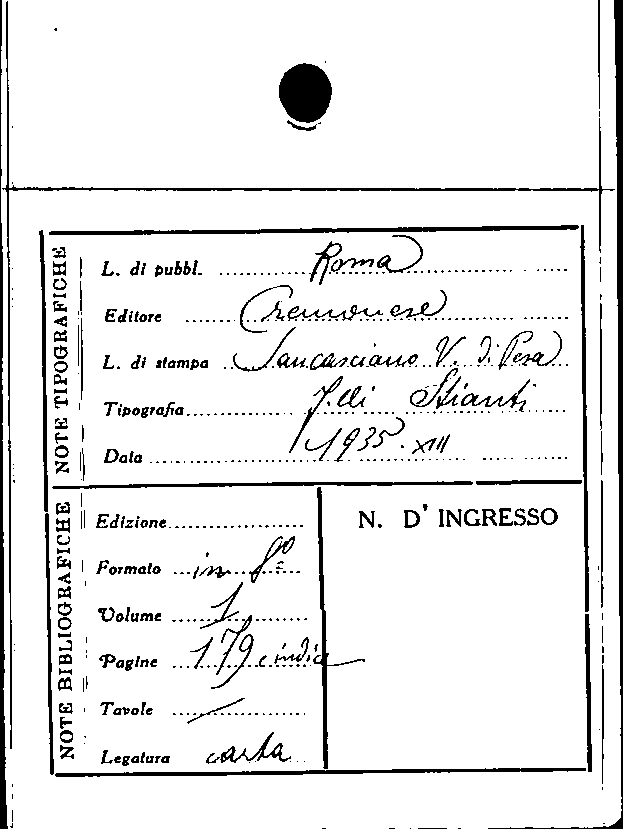 NOTE TIPOGRAFICHE
L. di pubbl. Roma
Editore Cremonese
L. di stampa Sancasciano V. di Pesa
Tipografia F.lli Stianti
Data 1935. XIII
NOTE BIBLIOGRAFICHE
Edizione
Formato in 8º
Volume 1
Pagine 179 e indice
Tavole /
Legatura carta
N. D' INGRESSO